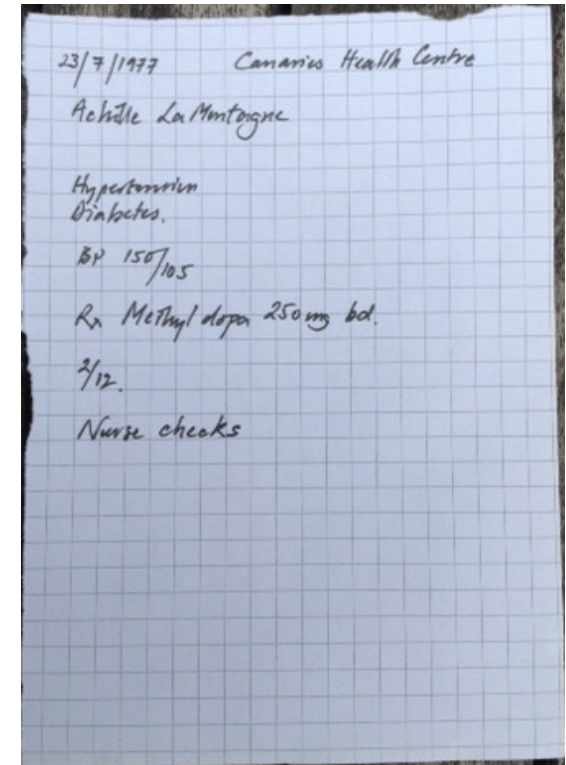 23/7/1977 Canaries Health Centre
Achille La Montagne
Hypertension
Diabetes.
BP 150/105
Rx Methyl dopa 250 mg bd.
2/12.
Nurse checks